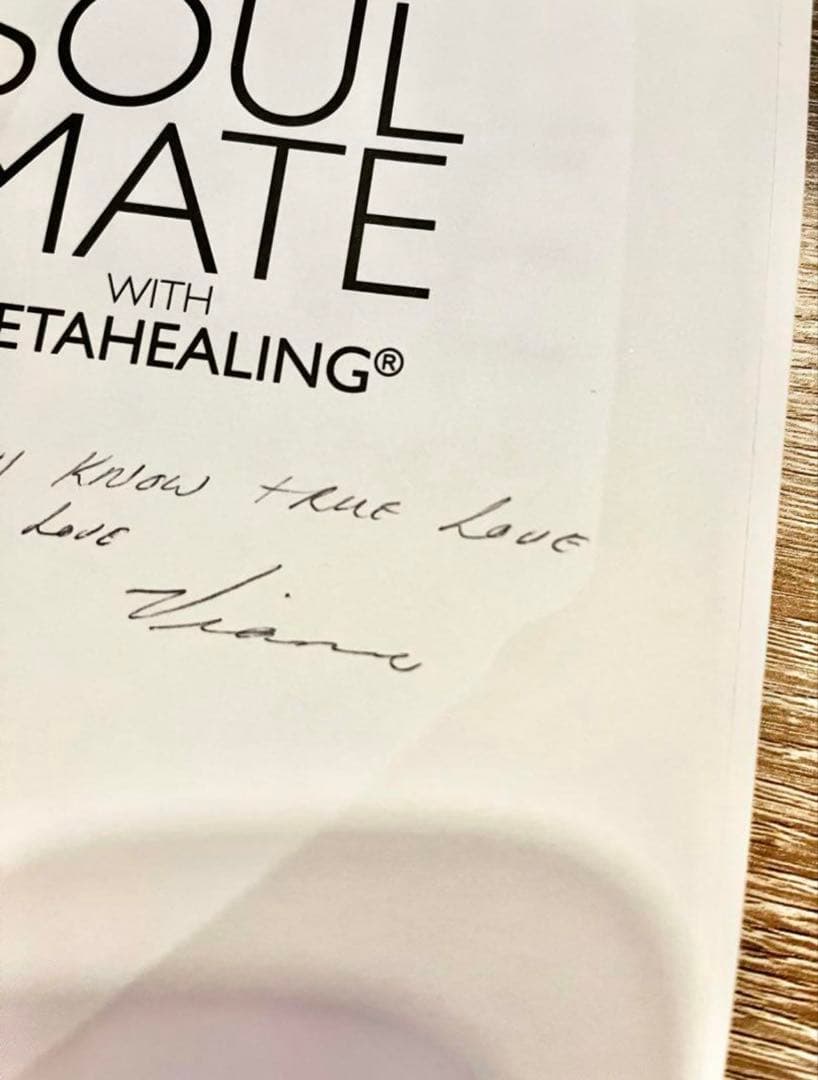 SOUL
MATE
WITH
ETAHEALING®
KNOW TRUE LOVE
LOVE
Vianna